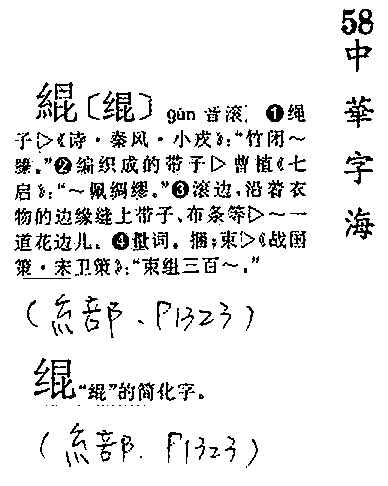 58
中華字海
緄〔绲〕gǔn 音滚。❶绳
子▷《诗·秦风·小戎》:“竹闭～
縢。”❷编织成的带子▷曹植《七
启》:“～佩绸缪。”❸滚边,沿着衣
物的边缘缝上带子、布条等▷～一
道花边儿。❹量词。捆;束▷《战国
策·宋卫策》:“束组三百～。”
(糸部、P1323)
绲“緄”的简化字。
(糸部、P1323)